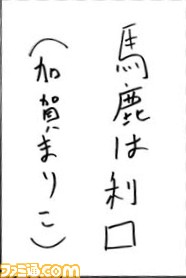 馬鹿は利口
（加賀まりこ）
ファミ通.com